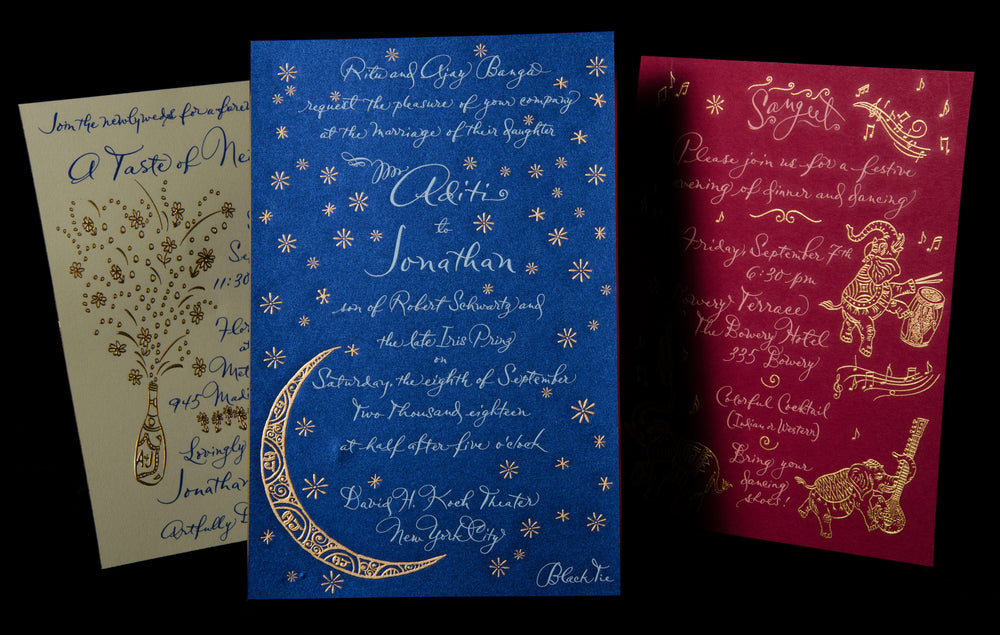 Join the newlyweds for a
A Taste of
11:30
at
945
Lovingly
Jonathan
Artfully
AJ
Ritu and Ajay Banga
request the pleasure of your company
at the marriage of their daughter
Aditi
to
Jonathan
son of Robert Schwartz and
the late Iris Prinz
on
Saturday, the eighth of September
Two Thousand eighteen
at half after five o'clock
David H. Koch Theater
New York City
Black Tie
Sangeet
Please join us for a festive
evening of dinner and dancing
Friday, September 7th
6:30 pm
Bowery Terrace
The Bowery Hotel
335 Bowery
Colorful Cocktail
(Indian or Western)
Bring your
dancing
shoes!